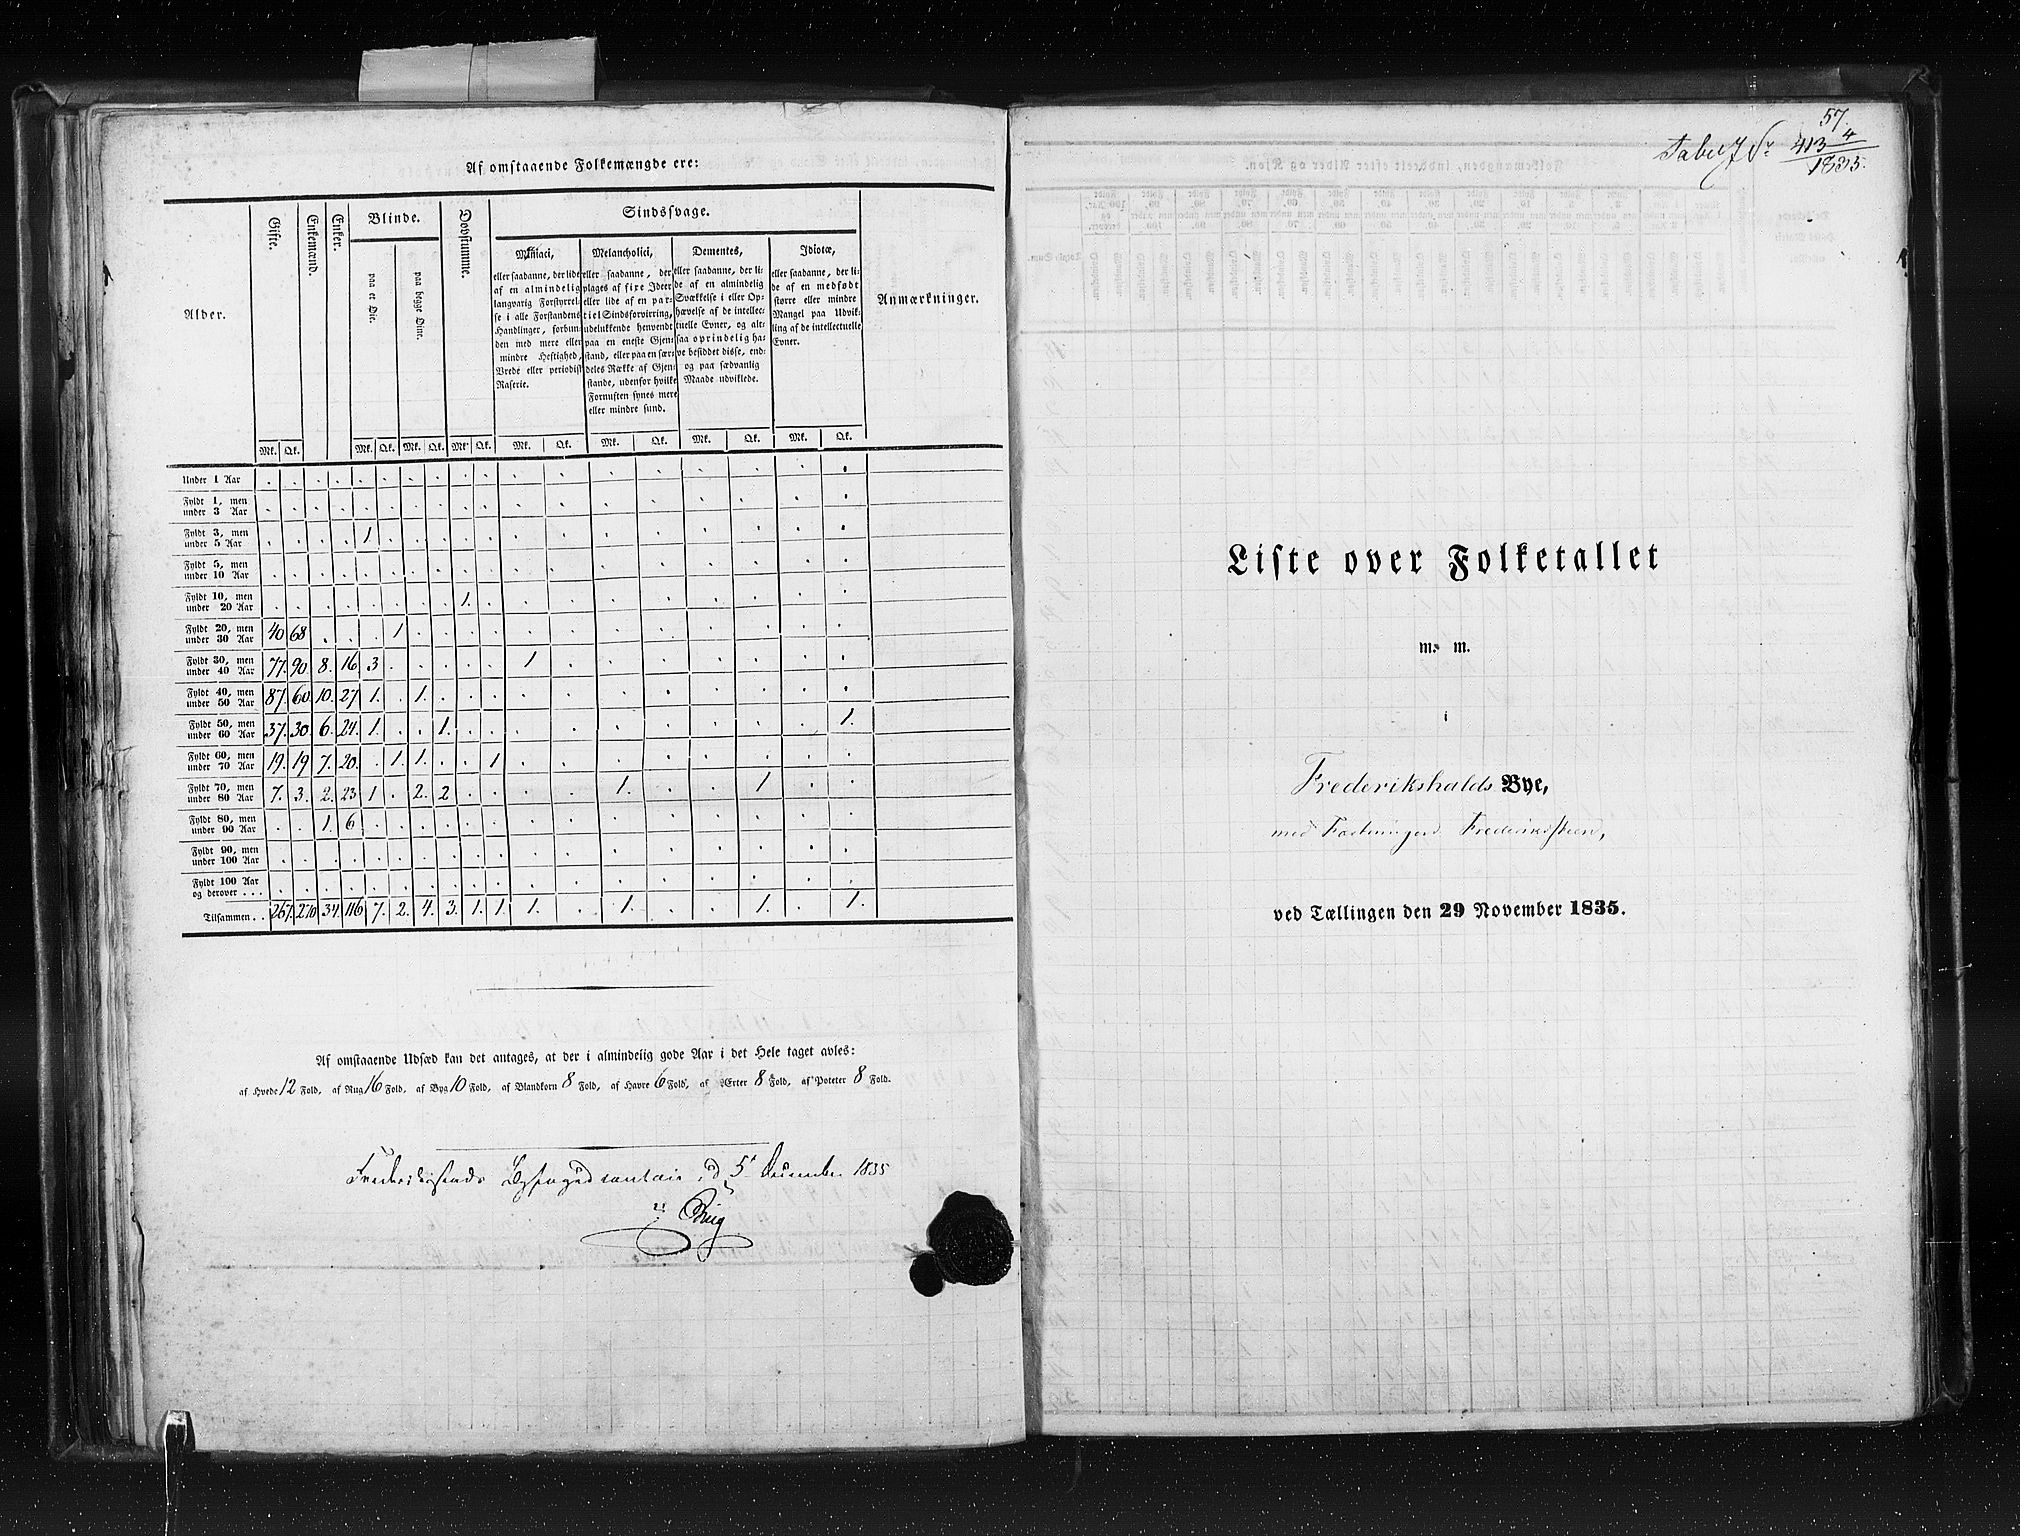 Af omstaaende Folkemængde ere:
Alder.
Gifte.
Enkemænd.
Enker.
Blinde.
paa et Øie.
paa begge Øine.
Døvstumme.
Sindssvage.
Maniaci,
eller saadanne, der lide
af en almindelig
langvarig Forstyrrel-
se i alle Forstandens
Handlinger, forbun-
den med mere eller
mindre Heftighed,
Vrede eller periodisk
Raserie.
Melancholici,
eller saadanne, der
plages af fixe Ideer
eller lide af en par-
tiel Sindsforvirring,
udelukkende henvendt
paa en eneste Gjen-
stand, eller paa en sær-
deles Række af Gjen-
stande, udenfor hvilke
Fornuften synes mere
eller mindre sund.
Dementes,
eller saadanne, der li-
de af en almindelig
Svækkelse i eller Op-
hævelse af de intellec-
tuelle Evner, og alt-
saa oprindelig ha-
ve besiddet disse, end-
og paa sædvanlig
Maade udviklede.
Idiotæ,
eller saadanne, der li-
de af en medfødt
større eller mindre
Mangel paa Udvik-
ling af de intellectuelle
Evner.
Anmærkninger.
Mk. Qk. Mk. Qk. Mk. Qk. Mk. Qk. Mk. Qk. Mk. Qk. Mk. Qk. Mk. Qk.
Under 1 Aar . . . . . . . . . . . . . . . . . .
Fyldt 1, men
under 3 Aar . . . . . . . . . . . . . . . . . .
Fyldt 3, men
under 5 Aar . . . . 1 . . . . . . . . . . . . .
Fyldt 5, men
under 10 Aar . . . . . . . . . . . . . . . . . .
Fyldt 10, men
under 20 Aar . . . . . . . . 1. . . . . . . . . .
Fyldt 20, men
under 30 Aar 40 68 . . . 1 . . . . . . . . . . . .
Fyldt 30, men
under 40 Aar 77. 90. 8. 16 3 . . . . . 1 . . . . . . .
Fyldt 40, men
under 50 Aar 87. 60. 10. 27 1. . 1. . . . . . . . . . . .
Fyldt 50, men
under 60 Aar 37. 30. 6. 24. 1. . . 1. . . . . . . . . . 1.
Fyldt 60, men
under 70 Aar 19. 19 7. 20. . 1 1. . . 1 . . . . . . . .
Fyldt 70, men
under 80 Aar 7. 3. 2. 23 1 . 2. 2 . . . . 1. . . 1 . .
Fyldt 80, men
under 90 Aar . . 1. 6 . . . . . . . . . . . . . .
Fyldt 90, men
under 100 Aar . . . . . . . . . . . . . . . . . .
Fyldt 100 Aar
og derover . . . . . . . . . . . . . . . . . . . . .
Tilsammen . . 267. 270 34. 116 7. 2. 4. 3. 1. 1. 1. . 1. . . 1. . 1.
Af omstaaende Udsæd kan det antages, at der i almindelig gode Aar i det Hele taget avles:
af Hvede 12 Fold, af Rug 16 Fold, af Byg 10 Fold, af Blandkorn 8 Fold, af Havre 6 Fold, af Erter 8 Fold, af Poteter 8 Fold.
5 December 1835
57.
413 4
1835.
Liste over Folketallet
m. m.
i
Frederikshalds Bye,
med Fæstningen Frederiksteen,
ved Tællingen den 29 November 1835.